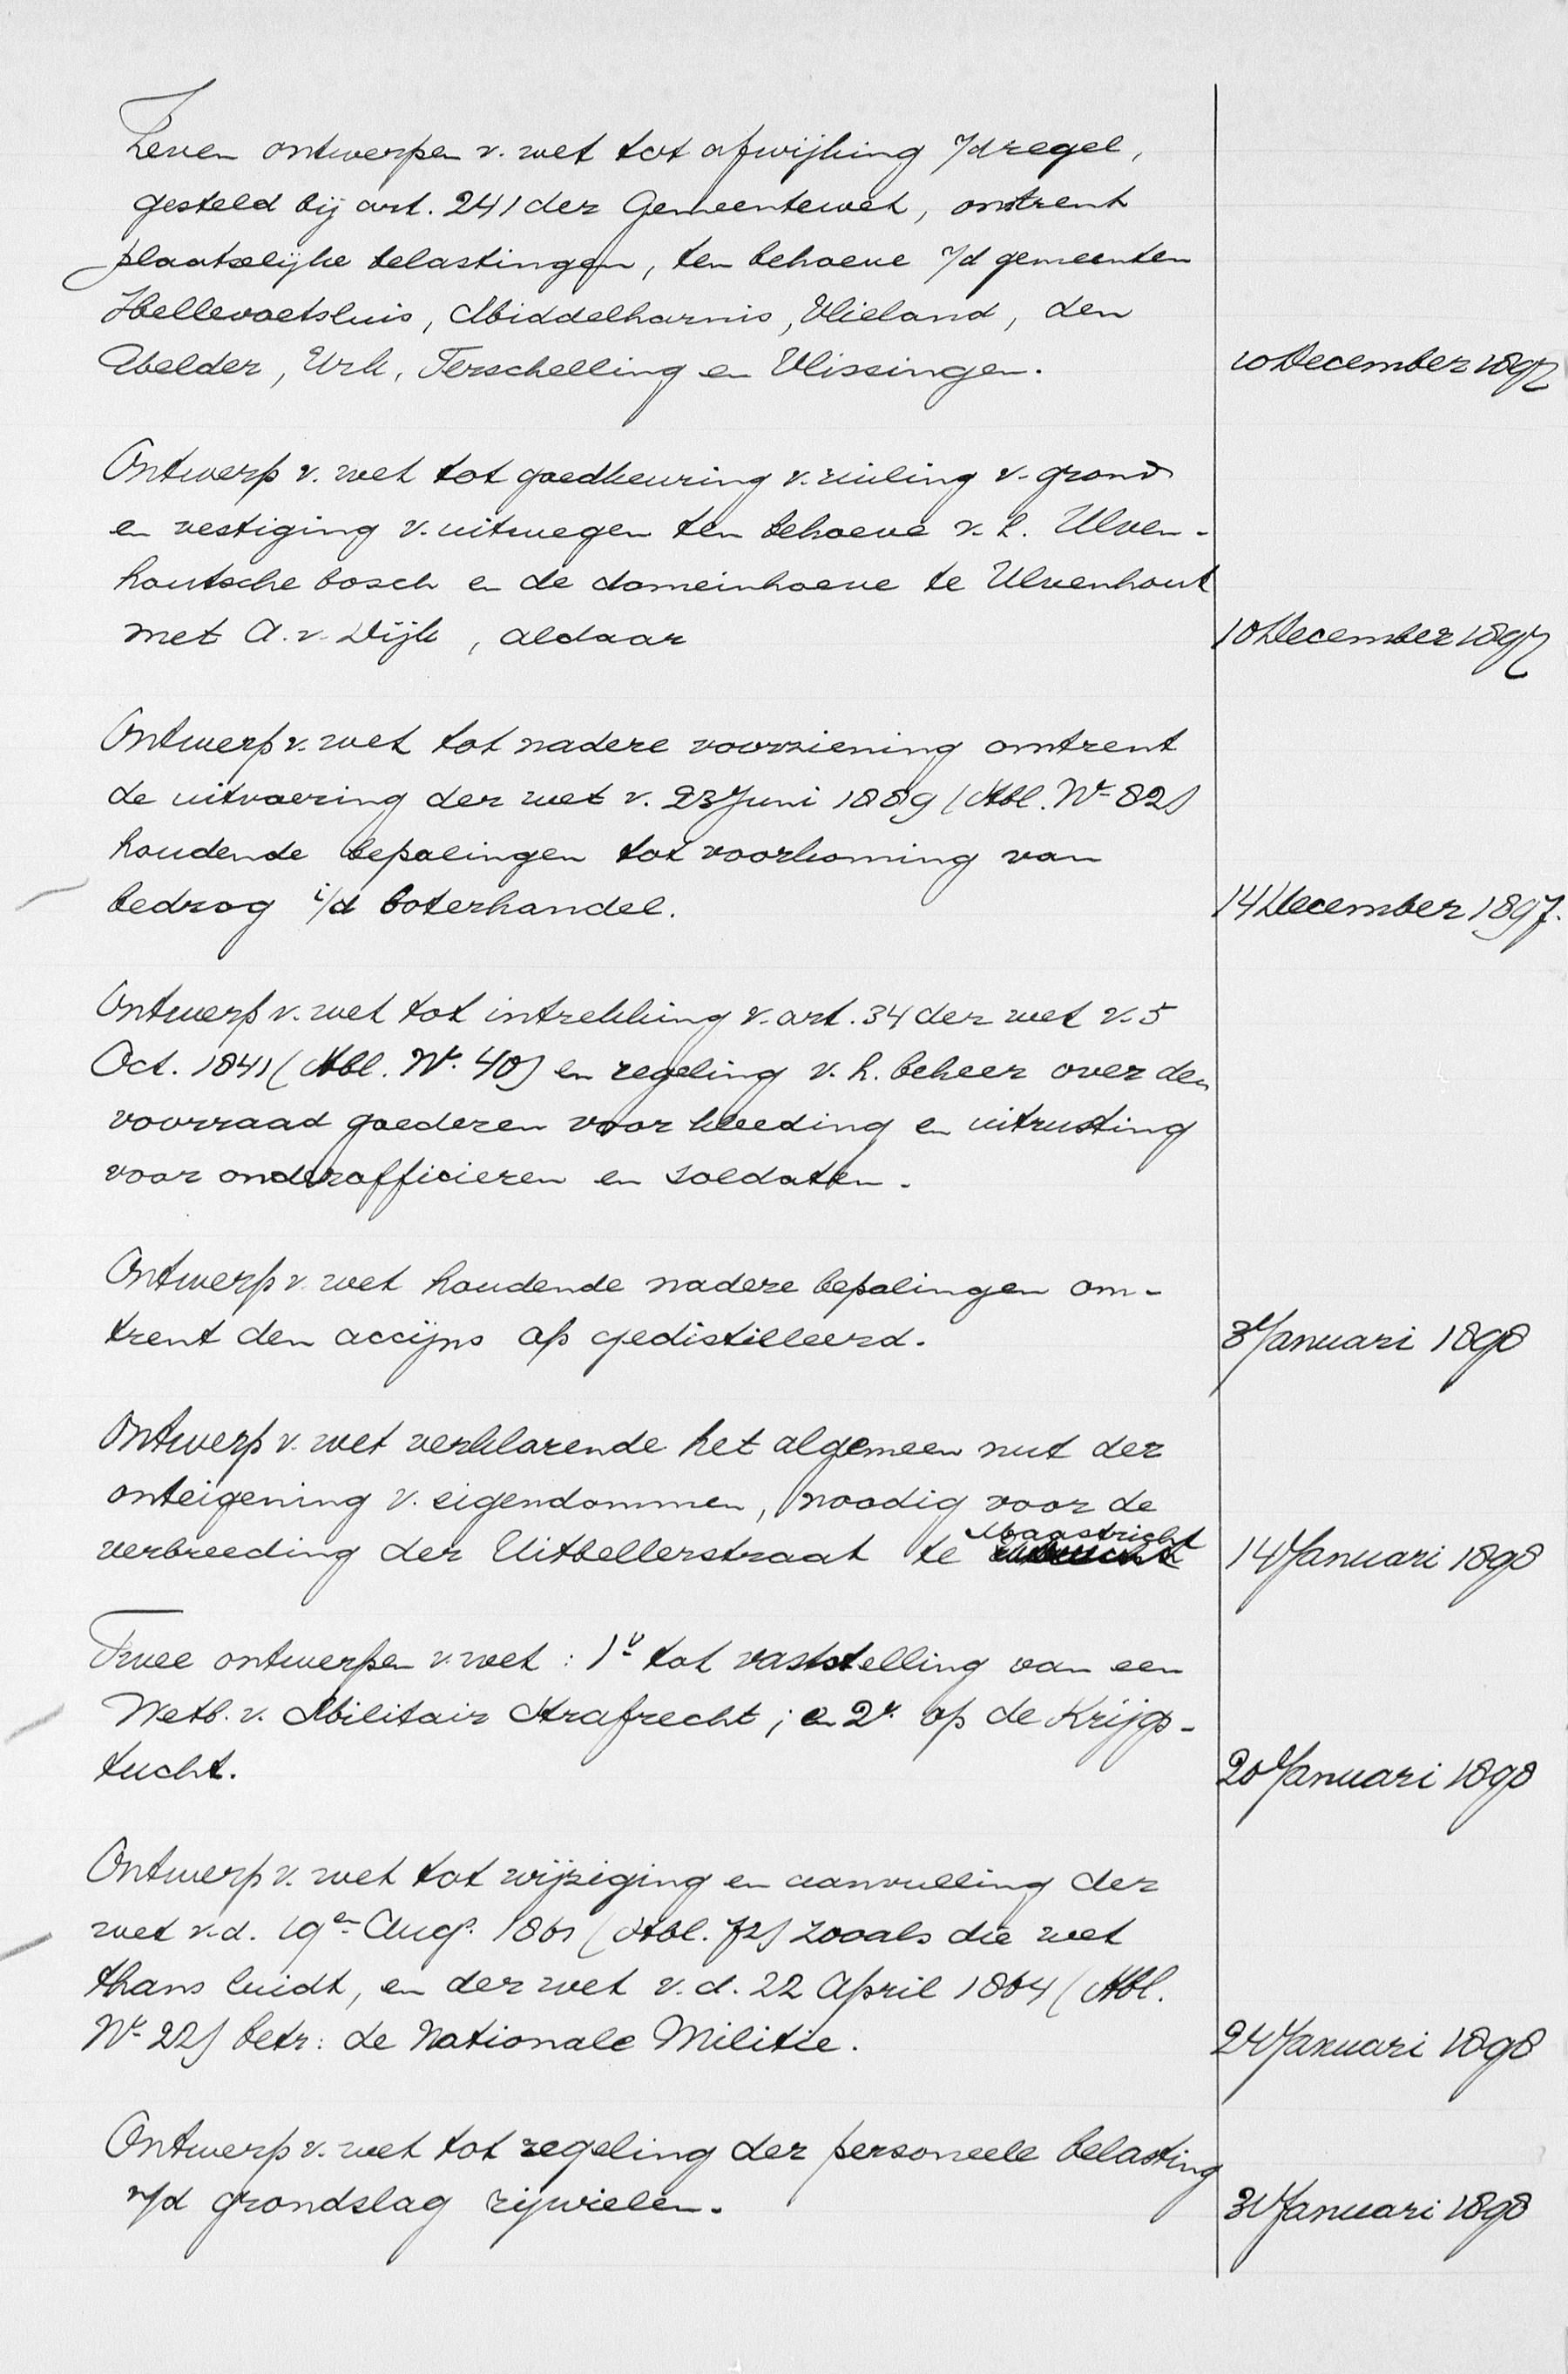 Zeven ontwerpen v. wet tot afwijking v/d regel,
gesteld bij art. 241 der Gemeentewet, omtrent
plaatselijke belastingen, ten behoeve v/d gemeenten
Hellevoetsluis, Middelharnis, Vlieland, den
Helder, Urk, Terschelling en Vlissingen.
10 December 1897
Ontwerp v. wet tot goedkeuring v. ruiling v. grond
en vestiging v. uitwegen ten behoeve v. h. Ulven-
houtsche bosch en de domeinhoeve te Ulvenhout
met A. v. Dijk, aldaar
10 December 1897
Ontwerp v. wet tot nadere voorziening omtrent
de uitvoering der wet v. 23 Juni 1889 (Stbl. No 82)
houdende bepalingen tot voorkoming van
bedrog i/d boterhandel.
14 December 1897.
Ontwerp v. wet tot intrekking v. art. 34 der wet v. 5
Oct. 1841 (Stbl. No. 40) en regeling v. h. beheer over den
voorraad goederen voor kleeding en uitrusting
voor onderofficieren en soldaten.
Ontwerp v. wet houdende nadere bepalingen om-
trent den accijns op gedistilleerd.
3 Januari 1898
Ontwerp v. wet verklarende het algemeen nut der
onteigening v. eigendommen, noodig voor de
verbreeding der Uitbellerstraat te Maastricht
14 Januari 1898
Twee ontwerpen v. wet : 1o tot vaststelling van een
Wetb. v. Militair Strafrecht ; en 2o. op de Krijgs-
tucht.
20 Januari 1898
Ontwerp v. wet tot wijziging en aanvulling der
wet v. d. 19en Aug. 1861 (Stbl. 72) zooals die wet
thans luidt, en der wet v. d. 22 April 1864 (Stbl.
No 22) betr: de Nationale Militie.
24 Januari 1898
Ontwerp v. wet tot regeling der personeele belasting
v/d grondslag rijwielen.
31 Januari 1898